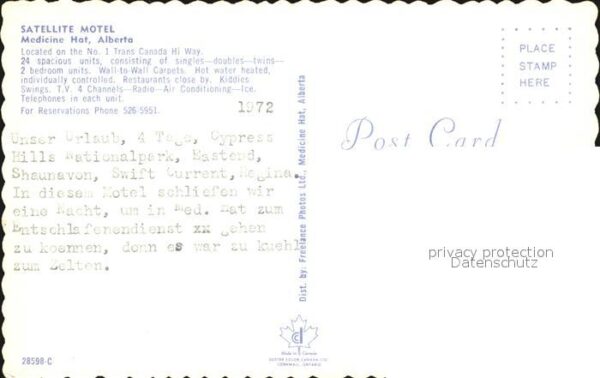 SATELLITE MOTEL
Medicine Hat, Alberta
Located on the No. 1 Trans Canada Hi Way.
24 spacious units, consisting of singles—doubles—twins—
2 bedroom units. Wall-to-Wall Carpets. Hot water heated,
individually controlled. Restaurants close by. Kiddies
Swings. T.V. 4 Channels—Radio—Air Conditioning—Ice.
Telephones in each unit.
For Reservations Phone 526-5951.
1972
Unser Urlaub, 4 Tage, Cypress
Hills Nationalpark, Eastend,
Shaunavon, Swift Current, Regina.
In diesem Motel schliefen wir
eine Nacht, um in Med. Hat zum
Entschlafenendienst xx gehen
zu koennen, donn es war zu kuehl
zum Zelten.
28598-C
Dist. by: Freelance Photos Ltd., Medicine Hat, Alberta
Post Card
PLACE
STAMP
HERE
privacy protection
Datenschutz
Made in Canada